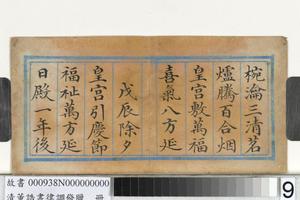 椀瀹三清茗
爐騰百合烟
皇宮敷萬福
喜氣八方延
戊辰除夕
皇宮引慶節
福祉萬方延
日殿一年後
故書 000938N000000000
清董誥書律調發贈 一冊
9